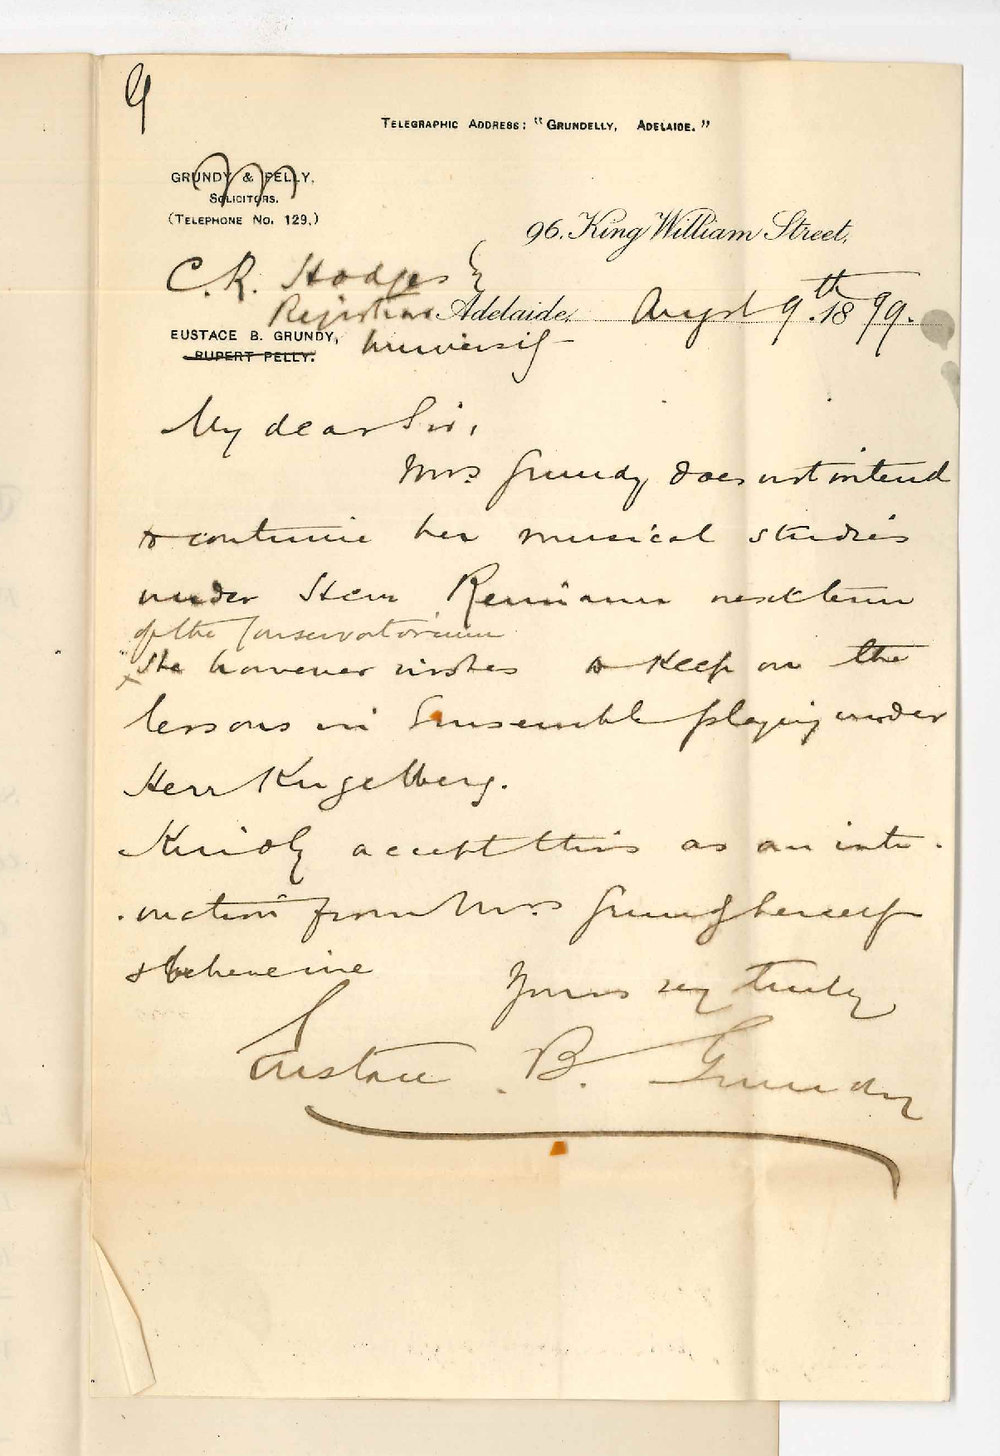 9
TELEGRAPHIC ADDRESS: "GRUNDELLY, ADELAIDE."
GRUNDY & PELLY,
SOLICITORS.
(TELEPHONE NO. 129.)
96. King William Street,
C. R. Hodges
Registrar Adelaide, August 9th. 1899.
EUSTACE B. GRUNDY, University
RUPERT PELLY.
My dear Sir,
Mrs. Grundy does not intend
to continue her musical studies
under Herr Reimann next term
of the Conservatorium
She however wishes to keep on the
lessons in Ensemble playing under
Herr Kugelberg.
Kindly accept this as an inti-
-mation from Mrs Grundy herself
& believe me
Yours very truly
Eustace B. Grundy